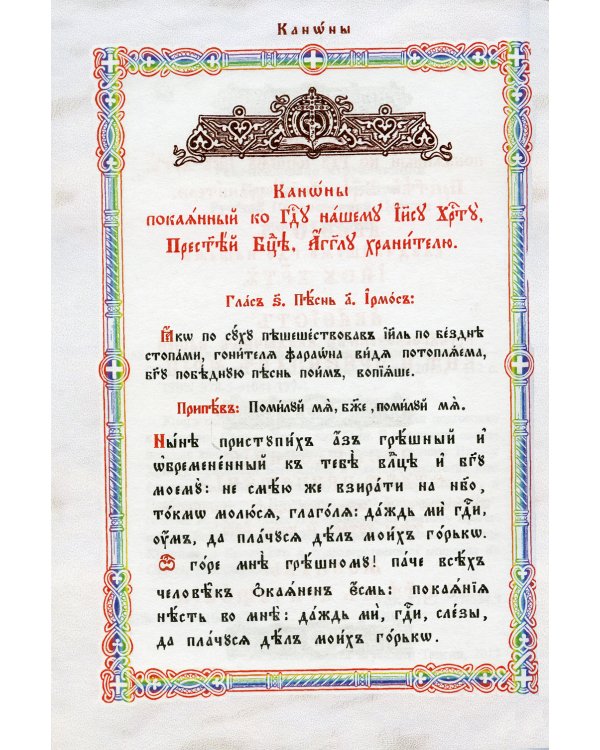 Канѡ́ны
Канѡ́ны
покаѧ́нный ко Гдⷭ҇ꙋ на́шемꙋ Ійсꙋ Хрⷭ҇тꙋ̀,
Прест҃ѣ́й Бцⷣѣ, А҆́гг҃лꙋ храни́телю.
Гла́съ ѕ҃. Пѣ́снь а҃. І҆рмо́съ:
Ꙗ҆́кѡ по сꙋ́хꙋ пѣшеше́ствовавъ і҆и҃ль по бе́зднѣ
стопа́ми, гони́телѧ фараѡ́на ви́дѧ потоплѧ́ема,
бг҃ꙋ побѣ́днꙋю пѣ́снь пои́мъ, вопїѧ́ше.
Припѣ́въ: Поми́лꙋй мѧ̀, бж҃е, поми́лꙋй мѧ̀.
Ны́нѣ пристꙋпи́хъ а҆́зъ грѣ́шный и҆
ѡ҆бремене́нный къ тебѣ̀ влⷣцѣ и҆ бг҃ꙋ
моемꙋ̀: не смѣ́ю же взира́ти на нб҃о,
то́кмѡ молю́сѧ, глаго́лѧ: да́ждь мѝ гдⷭ҇и,
ᲂу҆́мъ, да пла́чꙋсѧ дѣ́лъ мои́хъ го́рькѡ.
Ѽ го́ре мнѣ̀ грѣ́шномꙋ! па́че всѣ́хъ
человѣ́къ ѻ҆каѧ́ненъ є҆́смь: покаѧ́нїѧ
нѣ́сть во мнѣ̀: да́ждь мѝ, гдⷭ҇и, сле́зы,
да пла́чꙋсѧ дѣ́лъ мои́хъ го́рькѡ.